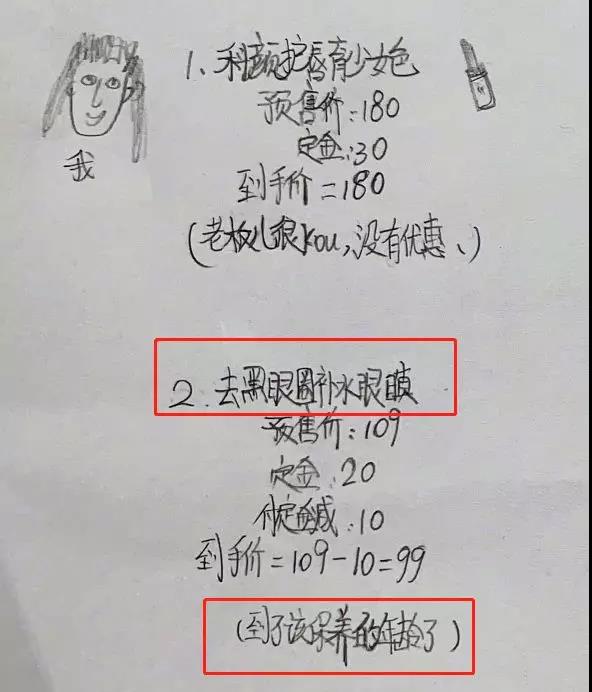 1、科颜护唇膏少女色
预售价:180
定金:30
到手价=180
我
(老板儿很kou,没有优惠、)
2.去黑眼圈补水眼膜
预售价:109
定金:20
付定金减:10
到手价=109-10=99
(到了该保养的年龄了)